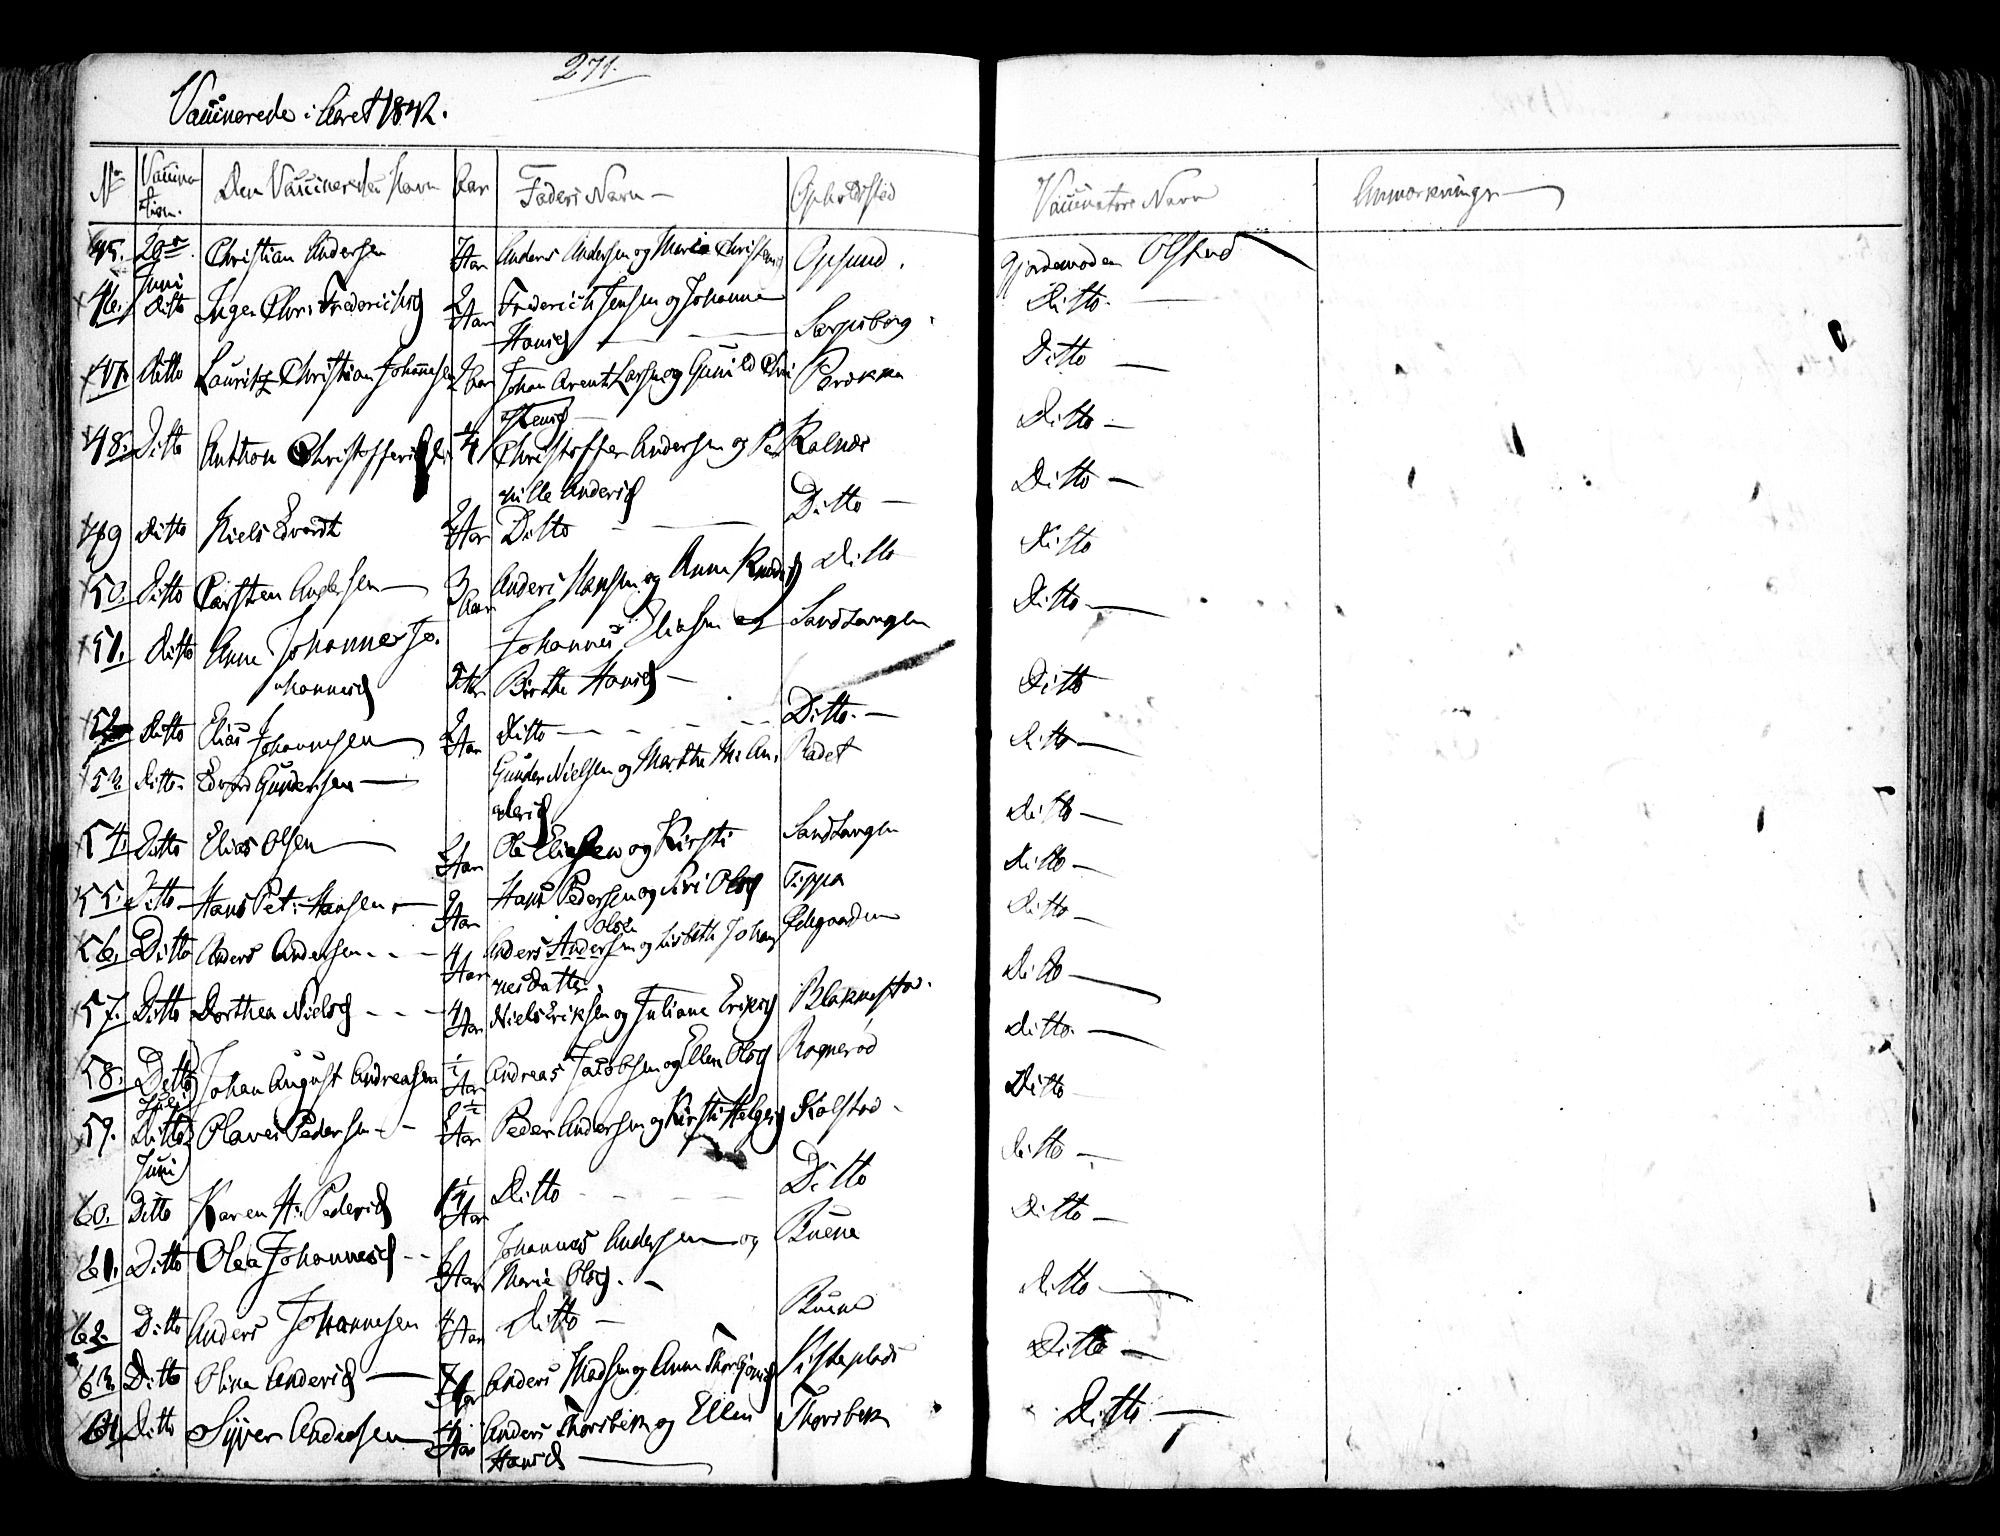 271.
Vaccinerede i Aaret 1842.
No Vaccina- Den Vaccineredes Navn Aar Faders Navn Opholdssted Vaccinators Navn Anmærkninger
tion.
45. 20de Christian Andersen Aar Anders Andersen og Maria Christens Opsund. Gjordemoder Olstad
Juni
46. Ditto Inger Chris Frederichsd 2 Aar Frederich Jensen og Johanne Ditto.
Hansd Sarpsborg.
47. Ditto Lauritz Christian Johannesen 2 Aar Johan Arent Larsen og Gunild Chri Ditto
stensd
48. Ditto Anthon Christoffersen 4 Christoffer Andersen og Per Kalnæs Ditto
nille Andersd
49 Ditto Niels Edvardt 2 Aar Ditto Ditto Ditto
50. Ditto Carsten Andersen 3 Aar Anders Hansen og Anne Knudsd Ditto Ditto
51. Ditto Anne Johanne Jo- Johannes Eliasen og Sandtangen Ditto
hannesd Aar Birthe Hansd
52 Ditto Elias Johannesen 2 Aar Ditto Ditto. Ditto
53. Ditto. Edvard Gundersen Gunder Nielsen og Marthe Ma An- Radet Ditto
dersd
54. Ditto Elias Olsen 2 Aar Ole Eliasen og Kirsti Sandtangen Ditto
55. Ditto Hans Pet: Hansen Aar Hans Pedersen og Siri Olsd Tippa Ditto
Olsen
56. Ditto Anders Andersen 4 Aar Anders Andersen og Lisbeth Johan Ødegaarden Ditto
nesdatter
57. Ditto Dorthea Nielsd 4 Aar Niels Eriksen og Juliane Eriksd Blakkestad. Ditto
58. Ditto Johan August Andreasen Aar Andreas Jacobsen og Ellen Olsd Rognerød Ditto.
Juli
59. Ditto Olaves Pedersen Aar Peder Andersen og Kirsti Helgesd Kolstad Ditto
Juni
60. Ditto Karen H. Pedersd Aar Ditto Ditto Ditto
61. Ditto Olea Johannesd Aar Johannes Andersen og Buene Ditto
Marie Olsd.
62. Ditto Anders Johannesen 4 Aar Ditto Buene Ditto
63. Ditto Oline Andersd Aar Anders Madsen og Anne Thorbjørnsd Ditto
64 Ditto Syver Andersen Aar Anders Thorsbekk og Ellen Thorsbekk Ditto
Hansd